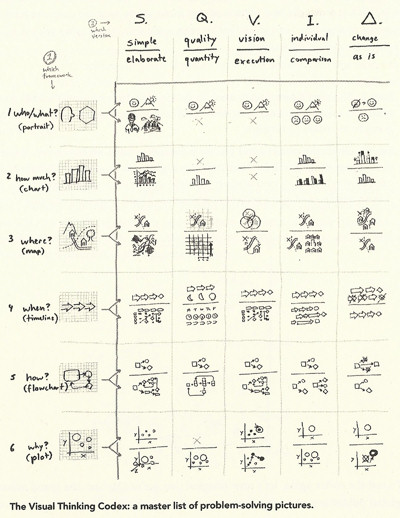 ③ → which version
S. Q. V. I. Δ.
simple quality vision individual change
elaborate quantity execution comparison as is
② which framework
1 who/what? (portrait)
2 how much? (chart)
3 where? (map)
4 when? (timeline)
5 how? (flowchart)
6 why? (plot)
The Visual Thinking Codex: a master list of problem-solving pictures.